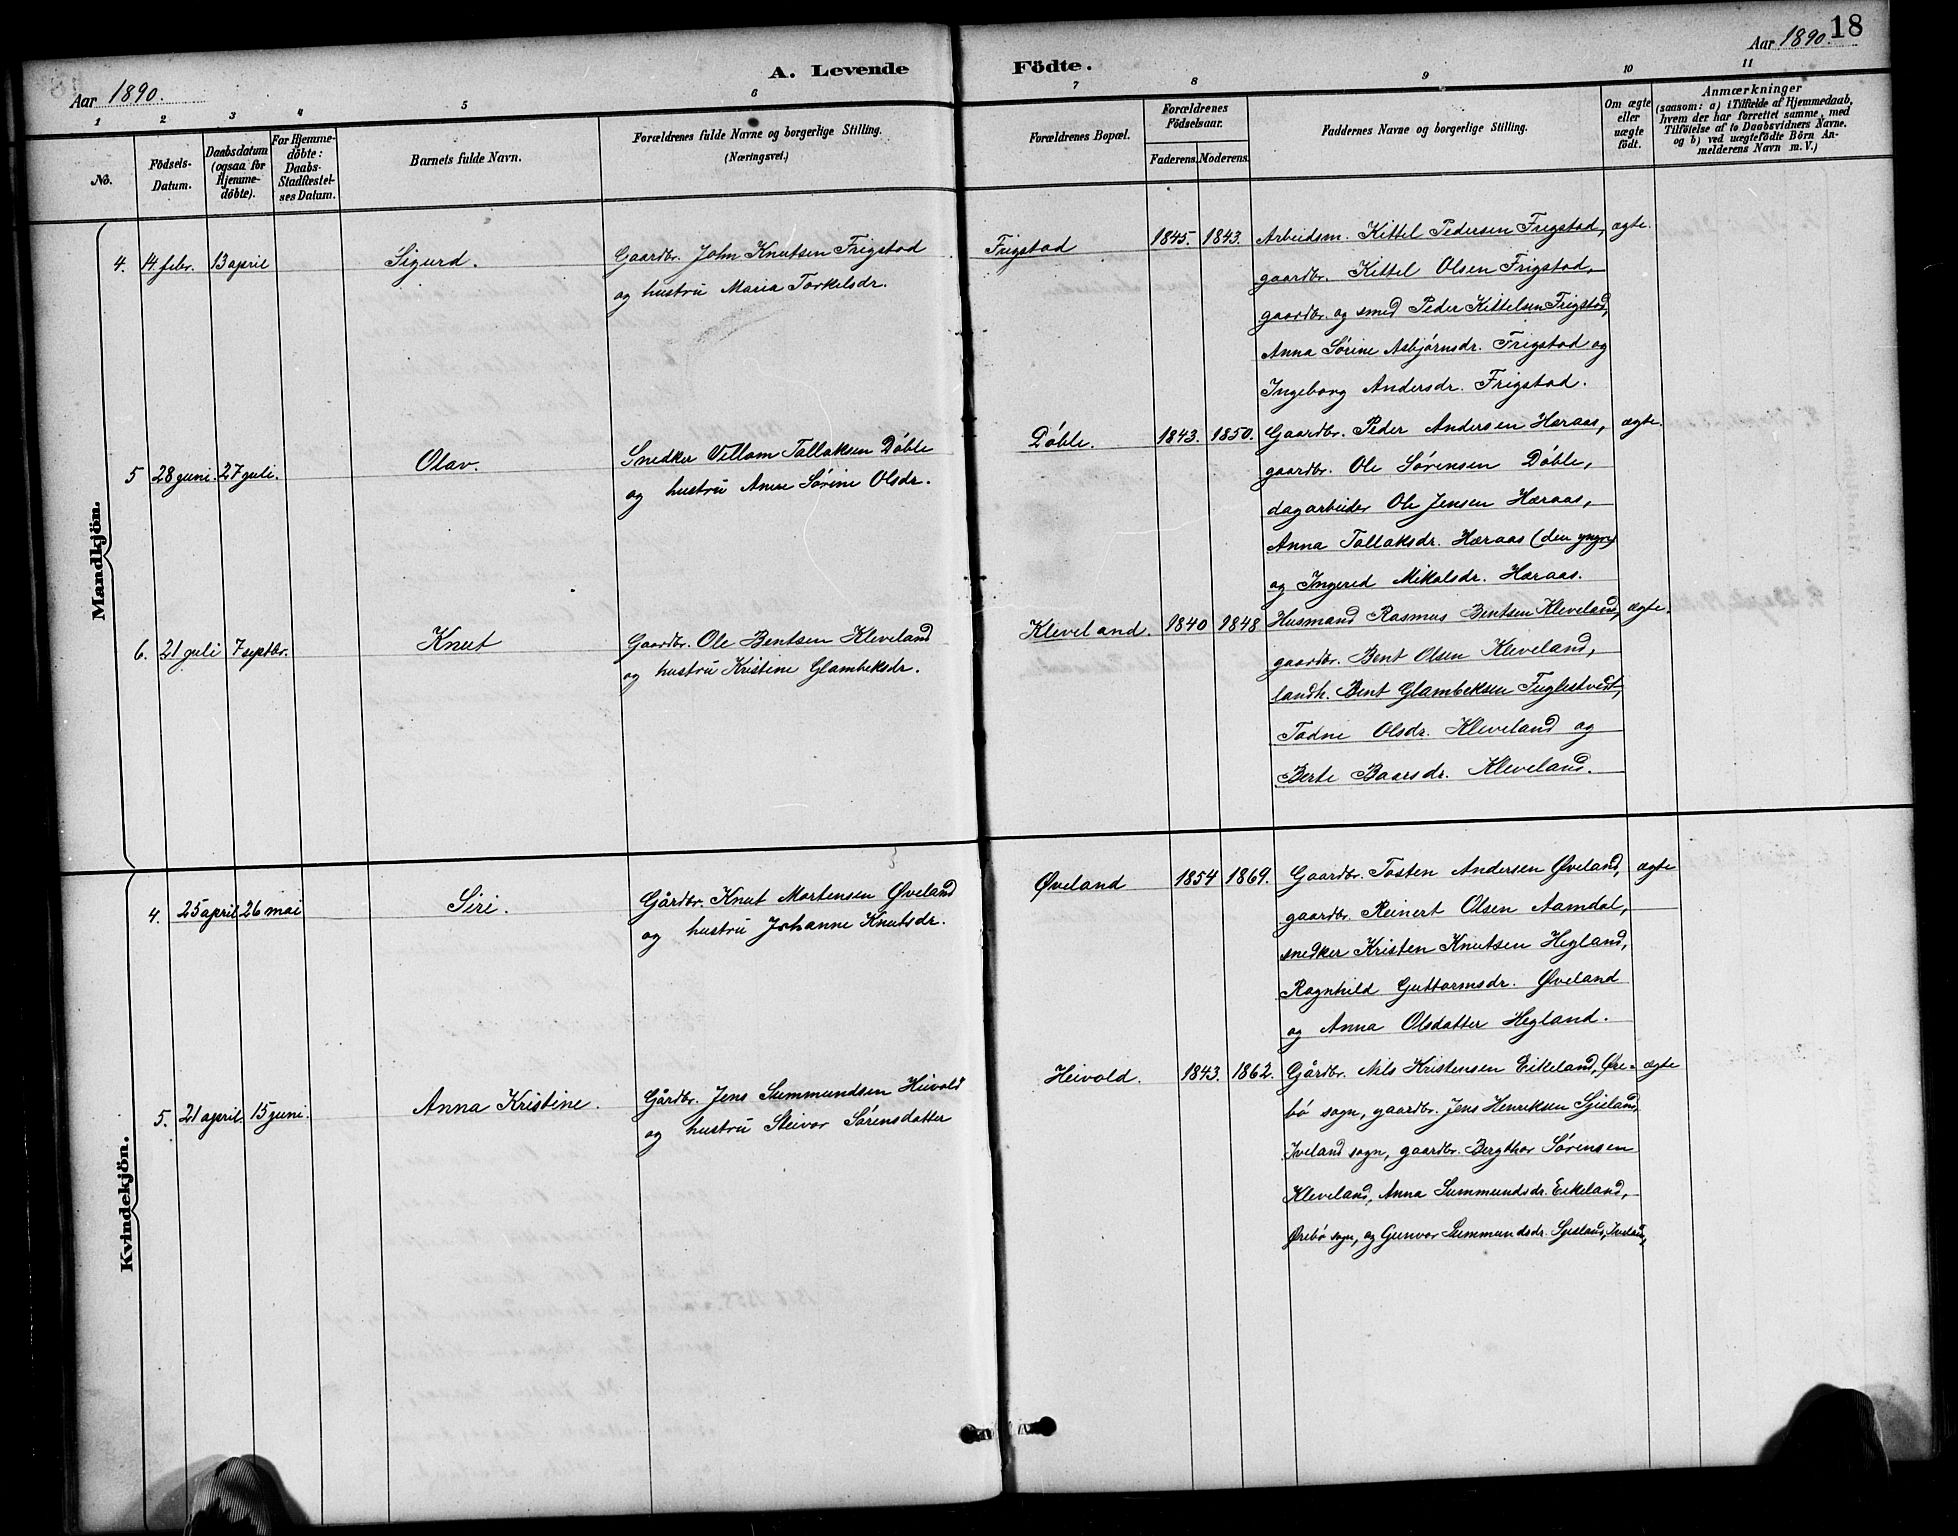 18
Aar 1890.
A. Levende
Födte.
Aar 1890.
1
2
3
4
5
6
7
8
9
10
11
No.
Födsels-
Datum.
Daabsdatum
(ogsaa for
Hjemme-
døbte).
For Hjemme-
døbte:
Daabs-
Stadfæstel-
ses Datum.
Barnets fulde Navn.
Forældrenes fulde Navne og borgerlige Stilling.
(Næringsvei.)
Forældrenes Bopæl.
Forældrenes
Födselsaar.
Faderens.
Moderens.
Faddernes Navne og borgerlige Stilling.
Om ægte
eller
uægte
født.
Anmærkninger
(saasom: a) i Tilfælde af Hjemmedaab,
hvem der har forrettet samme, med
Tilföielse af to Daabsvidners Navne.
og b) ved uægtefödte Börn An-
melderens Navn m. V.)
Mandkjön.
4. 14 febr. 13 april Sigurd. Gaardbr. John Knutsen Frigstad
og hustru Maria Torkelsdr.
Frigstad 1845. 1843. Arbeidsm. Kittel Pedersen Frigstad, ægte.
gaardbr. Kittel Olsen Frigstad,
gaardbr. og smed Peder Kittelsen Frigstad,
Anna Sørine Asbjørnsdr. Frigstad og
Ingeborg Andersdr. Frigstad.
5 28 juni. 27 juli. Olav. Snedker Villom Tallaksen Døble
og hustru Anne Sørine Olsdr.
Døble. 1843. 1850. Gaardbr. Peder Andersen Høraas, ægte.
gaardbr. Ole Sørensen Døble,
dagarbeider Ole Jensen Høraas,
Anna Tallaksdr. Høraas (den yngre)
og Ingered Mikalsdr. Høraas.
6. 21 juli 7 septbr. Knut Gaardbr. Ole Bentsen Kleveland
og hustru Kristine Glambeksdr.
Kleveland. 1840 1848 Husmand Rasmus Bentsen Kleveland, ægte.
gaardbr. Bent Olsen Kleveland,
landh. Bent Glambeksen Fuglestvedt,
Todne Olsdr. Kleveland og
Berte Baarsdr. Kleveland.
Kvindekjön.
4. 25 april 26 mai Siri. Gårdbr. Knut Mortensen Øveland
og hustru Johanne Knutsdr.
Øveland 1854 1869. Gaardbr. Tosten Andersen Øveland, ægte
gaardbr. Reinert Olsen Aamdal,
snedker Kristen Knutsen Hegland,
Ragnhild Guttormsdr. Øveland
og Anna Olsdatter Hegland.
5. 21 april. 15 juni. Anna Kristine. Gårdbr. Jens Summundsen Heivold
og hustru Steivor Sørensdatter
Heivold. 1843. 1862. Gårdbr. Nils Kristensen Eikeland, Øre- ægte
bø sogn, gaardbr. Jens Henriksen Gjisland
Iveland sogn, gaardbr. Bergthor Sørensen
Kleveland, Anna Summundsdr. Eikeland,
Ørebø sogn, og Gunvor Summundsdr. Gjisland,